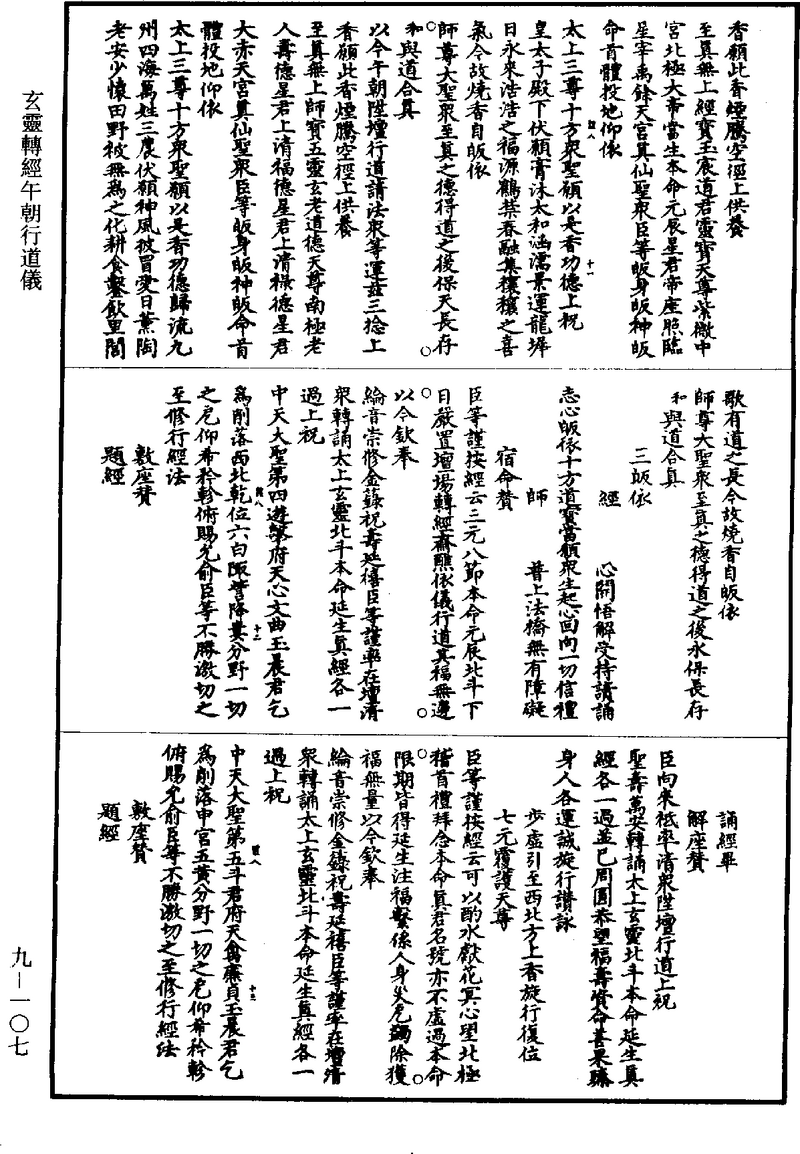 玄靈轉經午朝行道儀
九－一〇七
香願此香煙騰空徑上供養
至真無上經寶玉宸道君靈寶天尊紫微中
宮北極大帝當生本命元辰星君帝座照臨
星宰禹餘天宮真仙聖眾臣等皈身皈神皈
命首體投地仰依
太上三尊十方眾聖願以是香功德上祝
皇太子殿下伏願膏沐太和涵濡景運龍墀
日永來浩浩之福源鶴禁春融集穰穰之喜
氣今故燒香自皈依
師尊大聖眾至真之德得道之後保天長存
和與道合真
以今午朝陞壇行道請法眾等運茲三捻上
香願此香煙騰空徑上供養
至真無上師寶五靈玄老道德天尊南極老
人壽德星君上清福德星君上清祿德星君
大赤天宮真仙聖眾臣等皈身皈神皈命首
體投地仰依
太上三尊十方眾聖願以是香功德歸流九
州四海萬姓三農伏願神風披冒愛日薰陶
老安少懷田野被無為之化耕食鑿飲里閭
歌有道之長今故燒香自皈依
師尊大聖眾至真之德得道之後永保長存
和與道合真
三皈依
經　心開悟解受持讀誦
志心皈依十方道寶當願眾生起心回向一切信禮
師　普上法橋無有障礙
宿命贊
臣等謹按經云三元八節本命元辰北斗下
日嚴置壇場轉經齋醮依儀行道其福無邊
以今欽奉
綸音崇修金籙祝壽延禧臣等謹率在壇清
眾轉誦太上玄靈北斗本命延生真經各一
過上祝
中天大聖第四遊擊府天心文曲玉晨君乞
為削落西北乾位六白陬訾降婁分野一切
之厄仰希矜軫俯賜允俞臣等不勝激切之
至修行經法
敷座贊
題經
誦經畢
解座贊
臣向來祗率清眾陞壇行道上祝
聖壽萬安轉誦太上玄靈北斗本命延生真
經各一過並已周圓恭望福壽資命善果臻
身人各運誠旋行讚詠
步虛引至西北方上香旋行復位
七元覆護天尊
臣等謹按經云可以酌水獻花冥心望北極
稽首禮拜念本命真君名號亦不虛過本命
限期皆得延生注福繫係人身災厄蠲除獲
福無量以今欽奉
綸音崇修金籙祝壽延禧臣等謹率在壇清
眾轉誦太上玄靈北斗本命延生真經各一
過上祝
中天大聖第五斗君府天禽廉貞玉晨君乞
為削落中宮五黃分野一切之厄仰希矜軫
俯賜允俞臣等不勝激切之至修行經法
敷座贊
題經